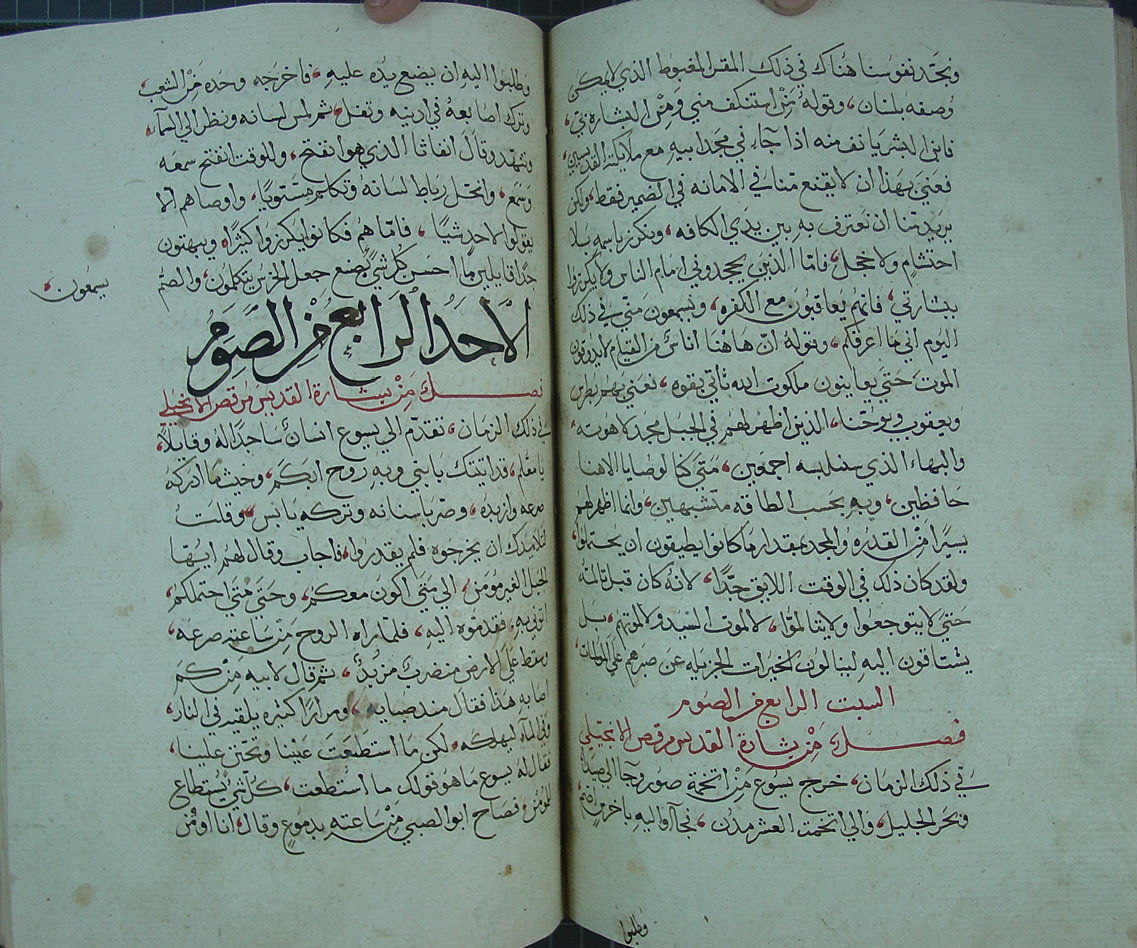 ونجد نفوسنا هناك في ذلك المقر المغبوط الذي لا يمكن
وصفه بلسان، وقوله مَن استنكف مني ومِن البشارة بي،
فابن البشر يانف منه اذا جآء في مجد ابيه مع ملايكة القديسين
فعنَى بهذا ان لا يقنع منا في الامانه في الضمير فقط، ولكن
يريد منا ان نعترف به بين يدي الكافه، ونكرز باسمه بلا
احتشام ولا خجل، فامّا الذين يجحدوني امام الناس ولا يكرزوا
ببشارتي، فانهم يعاقبون مع الكفره، ويسمعون متي في ذلك
اليوم اني ما اعرفكم، وقوله ان هاهنا اناسٌ من القيام لا يذوقون
الموت حتي يعاينون ملكوت الله تاتي بقوه، فعني بهم بطرس
ويعقوب ويوحنا، الذين اظهر لهم في الجبل مجد لاهوته
والبهاء الذي سنلبسه اجمعين، متي كنا لوصايا الاهنا
حافظين، وبه بحسب الطاقه متشبهين، وانما اظهر لهم
يسيرًا من القدره والمجد بمقدار ما كانوا يطيقون ان يحتملوا
ولقد كان ذلك في الوقت اللايق جدًّا، لانه كان قبل تالمه
حتي لا يتوجعوا ولا يتالموا، لا لموت السيد ولا لموتهم، بل
يشتاقون اليه لينالون الخيرات الجزيله عن صبرهم علي
السبت الرابع من الصوم
فصل من بشارة القديس مرقص الانجيلي
في ذلك الزمان، خرج يسوع من اتخمة صور وجا الي صيدا
وبحر الجليل، والي اتخمت العشر مدن، فجآاوا اليه باخرس اصم
وطلبوا
وطلبوا اليه ان يضع يده عليه، فاخرجه وحده من الشعب
وترك اصابعه في اذنيه وتفل، ثم لمس لسانه ونظر الي السمآء
وتنهد وقال افاثا الذي هو انفتح، وللوقت انفتح سمعه
وسمع، وانحل رباط لسانه وتكلم مستويًا، واوصاهم الا
يقولوا لاحد شيًا، فامّا هم فكانوا يكرزوا كثيرًا، ويبهتون
جدًا قايلين ما احسن كل شي يصنع جعل الخرس يتكلمون، والصم
يسمعون،
الاحد الرابع من الصوم
فصل من بشارة القديس مرقص الانجيلي
في ذلك الزمان، تقدّم الي يسوع انسان ساجدًا له وقايلًا،
يا معلم، قد اتيتك بابني وبه روح ابكم، وحيث ما ادركه
صرعه وازبده، وصر باسنانه وتركه يابس، وقلت
لتلاميذك ان يخرجوه فلم يقدروا، فاجاب وقال لهم ايها
الجيل الغير مومن، الي متي اكون معكم، وحتي متي احتملكم
اتوني به، فقدموه اليه، فلما راه الروح من ساعته صرعه،
وسقط علي الارض مضطرب مزبد، ثم قال لابيه من كم
اصابه هذا فقال منذ صبايه، ومرارًا كثيره يلقيه في النار،
وفي المآء ليهلكه، لكن ما استطعت عيننا وتحنن علينا،
فقال له يسوع ما هو قولك ما استطعت، كل شي يُستطاع
للمومن، فصاح ابو الصبي من ساعته بدموع وقال، انا اومن